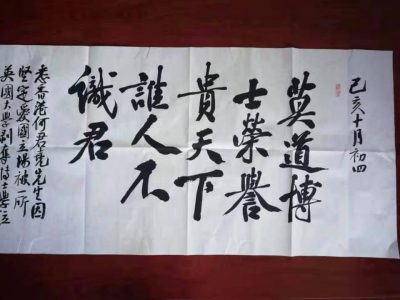 己亥十月初四
莫道博
士榮譽
貴天下
誰人不
識君
悉香港何君堯先生因
堅定愛國立場被一所
英國大學剝奪博士學位